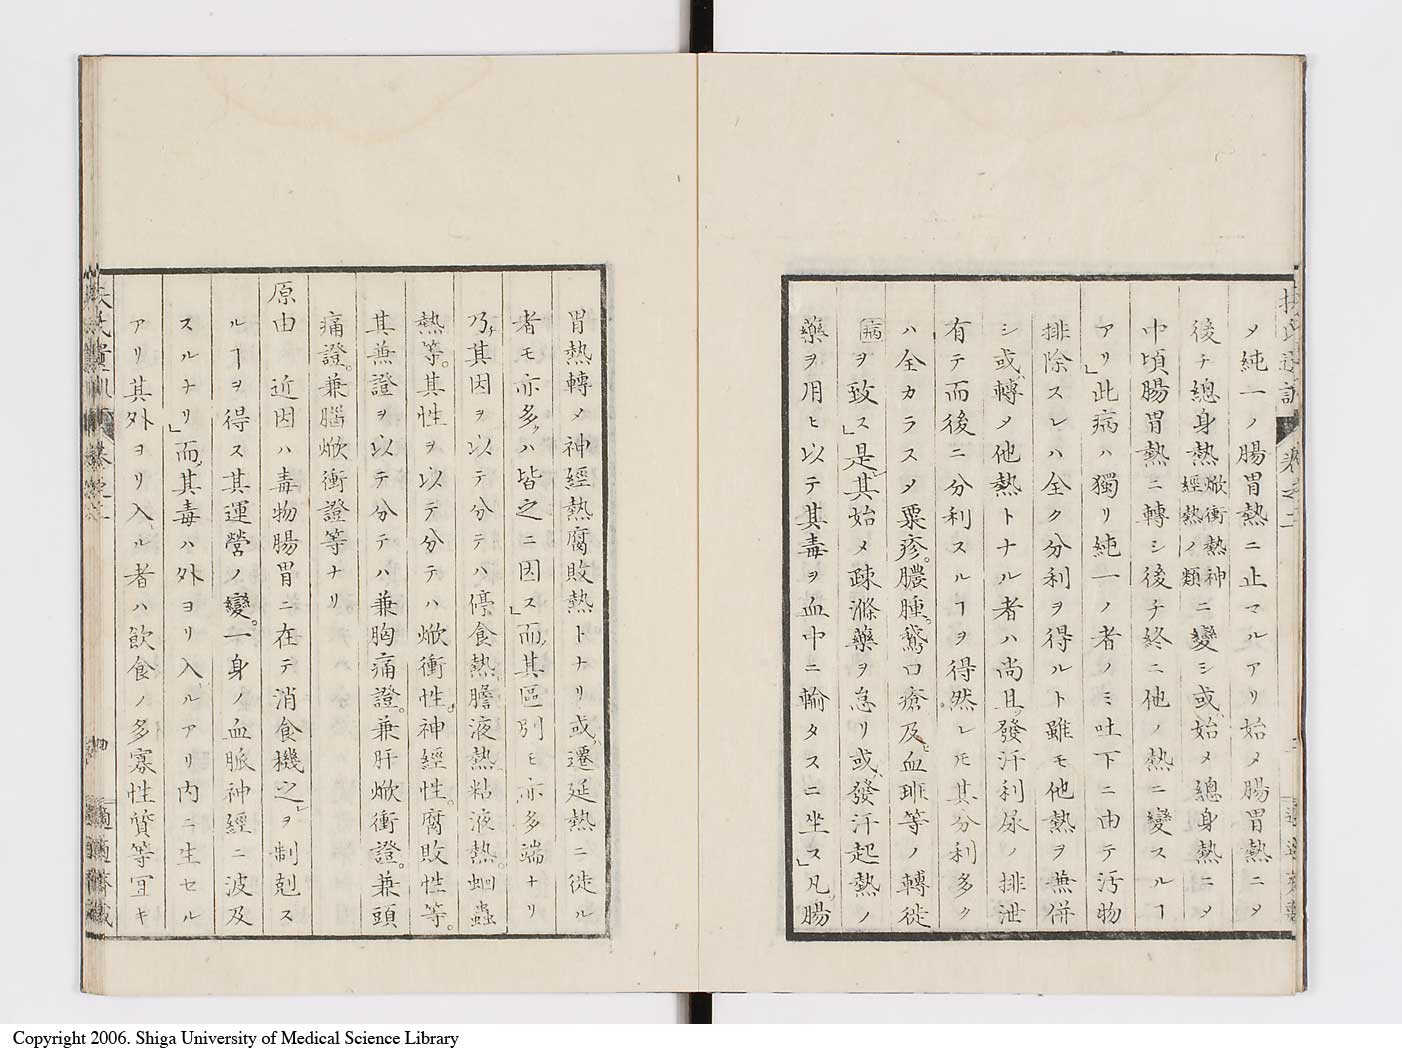 扶氏遺訓 卷之二
メ純一ノ腸胃熱ニ止マルアリ始メ腸胃熱ニヲ
後チ總身熱焮衝熱神經熱ノ類ニ變シ或ハ始メ總身熱ニヲ
中頃腸胃熱ニ轉シ後チ終ニ他ノ熱ニ變スルヿ
アリ」此病ハ獨リ純一ノ者ノミ吐下ニ由テ汚物
排除スレハ全ク分利ヲ得ルト雖モ他熱ヲ兼併
シ或ハ轉メ他熱トナル者ハ尚且ツ發汗利尿ノ排泄
有テ而後ニ分利スルヿヲ得然レ𪜈其分利多ク
ハ全カラスメ粟疹。膿腫。鵞口瘡及ヒ血痱等ノ轉徙
病ヲ致ス」是レ其始メ疎滌藥ヲ怠リ或ハ發汗起熱ノ
藥ヲ用ヒ以テ其毒ヲ血中ニ輸タスニ坐ス」凡ソ腸
胃熱轉メ神經熱腐敗熱トナリ或ハ遷延熱ニ徙ル
者モ亦多クハ皆之ニ因ス」而メ其區別モ亦多端ナリ
乃チ其因ヲ以テ分テハ停食熱膽液熱粘液熱。蛔蟲
熱等。其性ヲ以テ分テハ焮衝性。神經性。腐敗性等。
其兼證ヲ以テ分テハ兼胸痛證。兼肝焮衝證。兼頭
痛證。兼腦焮衝證等ナリ
原由 近因ハ毒物腸胃ニ在テ消食機之レヲ制剋ス
ルヿヲ得ス其運營ノ變。一身ノ血脈神經ニ波及
スルナリ」而メ其毒ハ外ヨリ入ルアリ內ニ生セル
アリ其外ヨリ入ル者ハ飮食ノ多寡性質等冝キ
扶氏遺訓 卷之二 四 適適齋藏